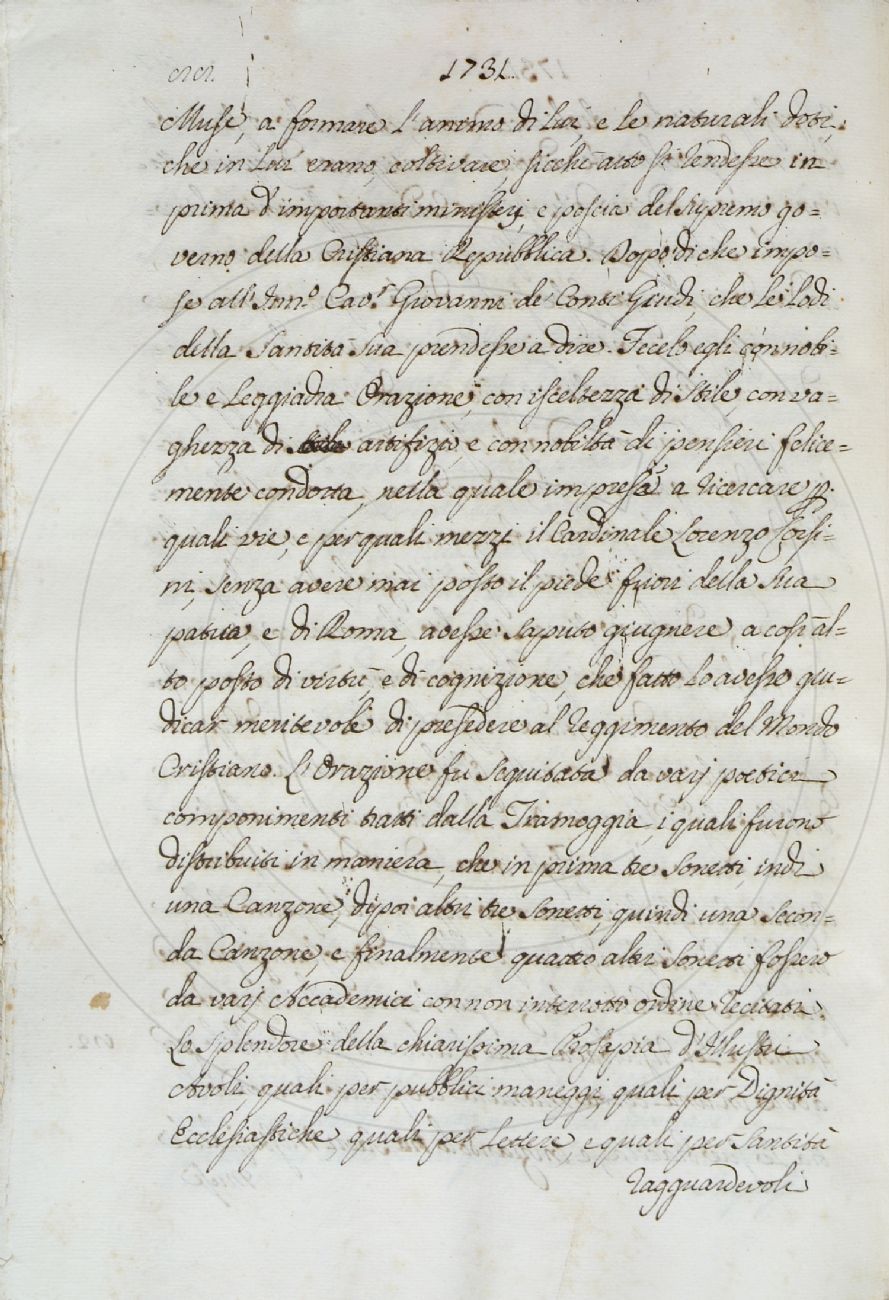 1731.
Muse, a formare l'animo di Lui, e le naturali doti,
che in Lui erano, coltivare, sicchè atto si rendesse in
prima d'importanti ministerj, e poscia del supremo go=
verno della Cristiana Repubblica. Dopo di che impo=
se all' Inno. Cav.r Giovanni de' Conti Guidi, che le Lodi
della Santità Sua prendesse a dire. Fecelo egli con nobi=
le e leggiadra Orazione, con isceltezza di stile, con va=
ghezza di artifizio, e con nobiltà di pensieri felice=
mente condotta, nella quale imprese a ricercare p.
quali vie, e per quali mezzi il Cardinale Lorenzo Corsi=
ni, senza avere mai posto il piede fuori della sua
patria, e di Roma, avesse saputo giugnere a così al=
to posto di virtù, e di cognizione, che fatto lo avesse giu=
dicar meritevole di presedere al reggimento del Mondo
Cristiano. L'Orazione fu seguitata da varj poetici
componimenti tratti dalla Tramoggia, i quali furono
distribuiti in maniera, che in prima tre Sonetti, indi
una Canzone, dipoi altri tre Sonetti, quindi una secon=
da Canzone, e finalmente quattro altri Sonetti fossero
da varj Accademici con non interrotto ordine recitati.
Lo splendore della chiarissima Prosapia d'Illustri
Avoli quali per pubblici maneggi, quali per Dignità
Ecclesiastiche, quali per Lettere, e quali per Santità
ragguardevoli